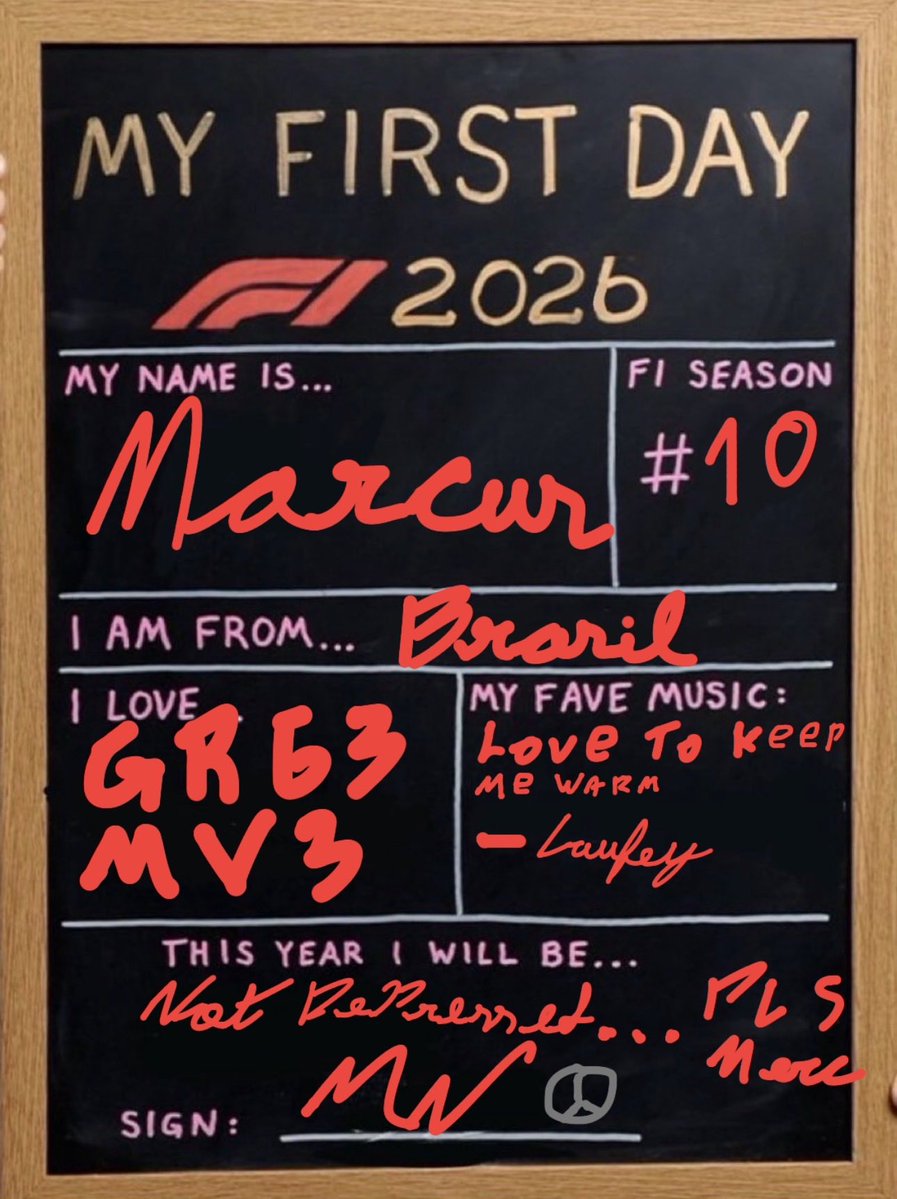 MY FIRST DAY
F1 2026
MY NAME IS...
Marcus
F1 SEASON
#10
I AM FROM... Brasil
I LOVE
GR63
MV3
MY FAVE MUSIC:
LOVE TO KeeP
Me WARM
- Laufey
THIS YEAR I WILL BE...
Not DePressed... PLS
Merc
SIGN: